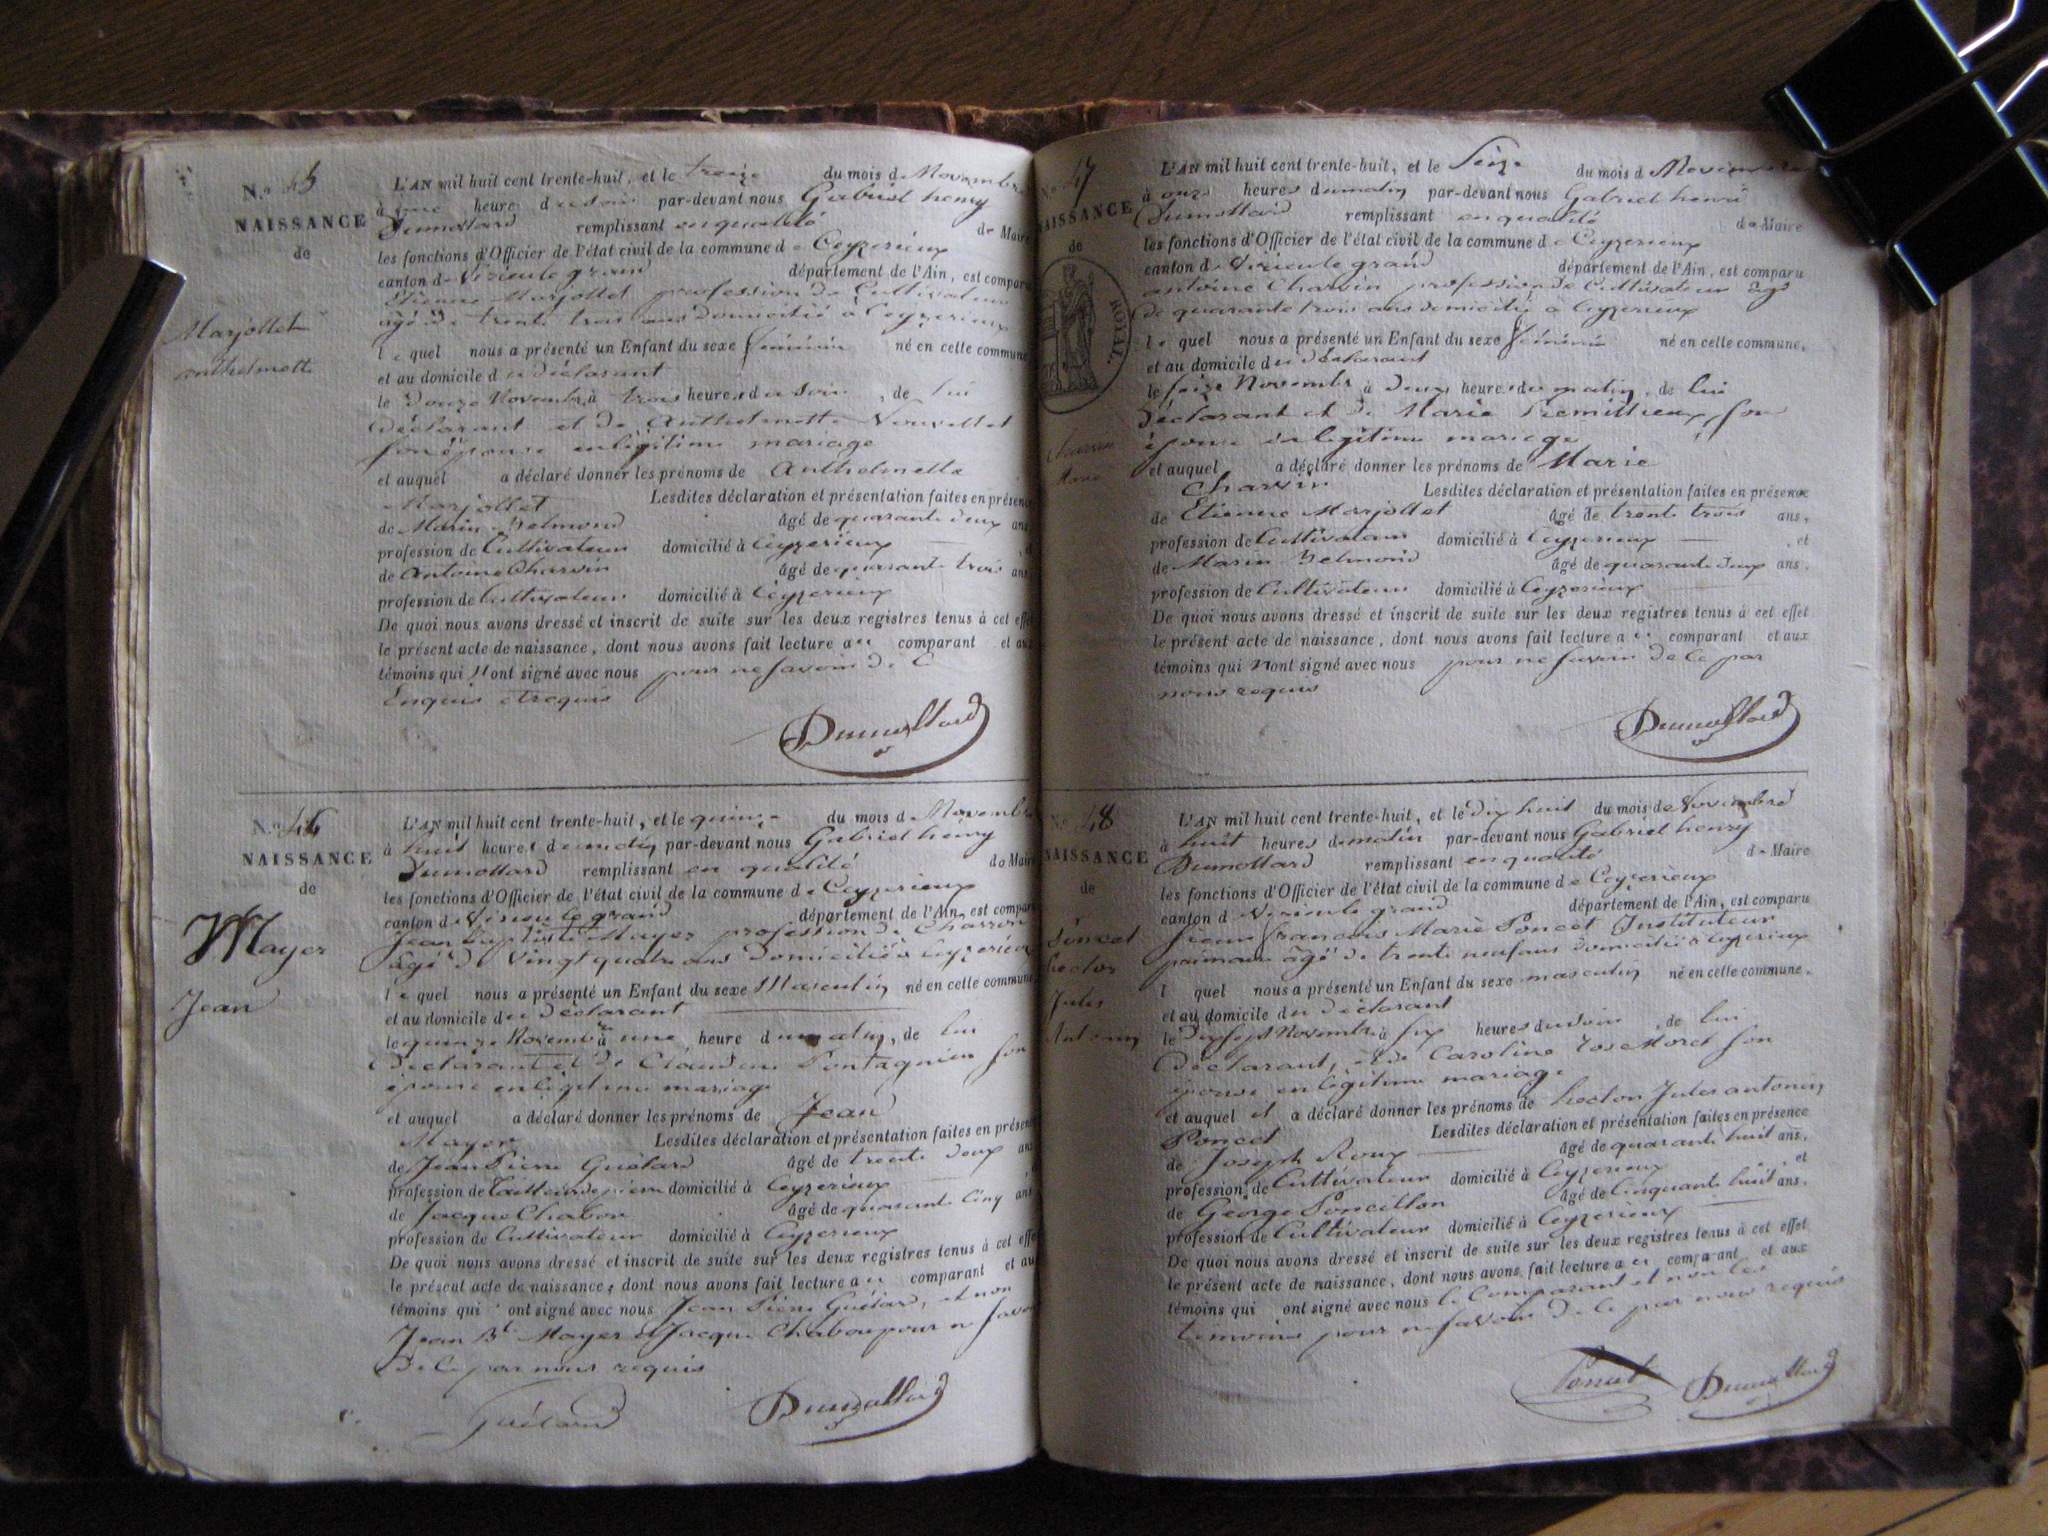 N.º 45
NAISSANCE
de
Marjollet
anthelmette
L'AN mil huit cent trente-huit, et le treize du mois de Novembre
à une heure du soir par-devant nous Gabriel henry
Dumollard remplissant en qualité de Maire
les fonctions d'Officier de l'état civil de la commune de Ceyzerieux
canton de Virieu le grand département de l'Ain, est comparu
Etienne Marjollet profession de Cultivateur
âgé de trente trois ans domicilié a Ceyzerieux
le quel nous a présenté un Enfant du sexe féminin né en celle commune
et au domicile du déclarant
le Douze Novembre à trois heures du soir, de lui
déclarant et de Anthelmette
son épouse en légitime mariage
et auquel a déclaré donner les prénoms de anthelmette
Marjollet Lesdites déclaration et présentation faites en présence
de Marin Belmond âgé de quarante deux ans
profession de Cultivateur domicilié à Ceyzerieux
de Antoine Charvin âgé de quarante trois ans
profession de Cultivateur domicilié à Ceyzerieux
De quoi nous avons dressé et inscrit de suite sur les deux registres tenus à cet effet
le présent acte de naissance, dont nous avons fait lecture au comparant et aux
témoins qui N'ont signé avec nous pour ne savoir de C
Enquis et requis
Dumollard
N.º 46
NAISSANCE
de
Mayer
Jean
L'AN mil huit cent trente-huit, et le quinze du mois de Novembre
à huit heures du matin par-devant nous Gabriel henry
Dumollard remplissant en qualité de Maire
les fonctions d'Officier de l'état civil de la commune de Ceyzerieux
canton de Virieu le grand département de l'Ain, est comparu
Jean Baptiste Mayer profession de Charron
âgé de vingt quatre ans domicilié à Ceyzerieux
le quel nous a présenté un Enfant du sexe Masculin né en celle commune
et au domicile du déclarant
le quinze Novembre à une heure du matin, de lui
Déclarant et de Claudine Pontagnier son
épouse en légitime mariage
et auquel a déclaré donner les prénoms de Jean
Mayer Lesdites déclaration et présentation faites en présence
de Jean Pierre Guélard âgé de trente deux ans
profession de tailleur de pierre domicilié à Ceyzerieux
de Jacque Chabou âgé de quarante cinq ans
profession de Cultivateur domicilié à Ceyzerieux
De quoi nous avons dressé et inscrit de suite sur les deux registres tenus à cet effet
le présent acte de naissance, dont nous avons fait lecture au comparant et aux
témoins qui ont signé avec nous Jean Pierre Guélard, et non
Jean Bte Mayer et Jacque Chabou pour ne savoir
de Ce par nous requis
Guélard Dumollard
N.º 47
NAISSANCE
de
ROYAL.
Charvin
Marie
L'AN mil huit cent trente-huit, et le Seize du mois de Novembre
à onze heures du matin par-devant nous Gabriel henri
Dumollard remplissant en qualité de Maire
les fonctions d'Officier de l'état civil de la commune de Ceyzerieux
canton de Virieu le grand département de l'Ain, est comparu
antoine Charvin profession de Cultivateur âgé
de quarante trois ans domicilié à Ceyzerieux
le quel nous a présenté un Enfant du sexe féminin né en celle commune.
et au domicile du déclarant
le seize Novembre à deux heures du matin, de lui
déclarant et de Marie Premillieux, son
épouse en légitime mariage
et auquel a déclaré donner les prénoms de Marie
Charvin Lesdites déclaration et présentation faites en présence
de Etienne Marjollet âgé de trente trois ans,
profession de Cultivateur domicilié à Ceyzerieux, et
de Marin Belmond âgé de quarante deux ans.
profession de Cultivateur domicilié à Ceyzerieux
De quoi nous avons dressé et inscrit de suite sur les deux registres tenus à cet effet
le présent acte de naissance, dont nous avons fait lecture au comparant et aux
témoins qui Nont signé avec nous pour ne savoir de Ce par
nous requis
Dumollard
N.º 48
NAISSANCE
de
Poncet
hector
Jules
Antonin
L'AN mil huit cent trente-huit, et le Dix huit du mois de Novembre
à huit heures du matin par-devant nous Gabriel henry
Dumollard remplissant en qualité de Maire
les fonctions d'Officier de l'état civil de la commune de Ceyzerieux
canton d Virieu le grand département de l'Ain, est comparu
françois Marie Poncet Instituteur
primaire âgé de trente neuf ans domicilié à Ceyzerieux
l quel nous a présenté un Enfant du sexe masculin né en celle commune.
et au domicile du déclarant
le Dix sept Novembre à six heures du soir, de lui
Déclarant, et de Caroline Rose Morel son
épouse en légitime mariage
et auquel il a déclaré donner les prénoms de hector Jules antonin
Poncet Lesdites déclaration et présentation faites en présence
de Joseph Roux âgé de quarante huit ans,
profession de Cultivateur domicilié à Ceyzerieux et
de George Poncillon âgé de Cinquante huit ans.
profession de Cultivateur domicilié à Ceyzerieux
De quoi nous avons dressé et inscrit de suite sur les deux registres tenus à cet effet
le présent acte de naissance, dont nous avons fait lecture au comparant et aux
témoins qui ont signé avec nous le Comparant et non les
témoins pour ne savoir de Ce par nous requis
Poncet Dumollard